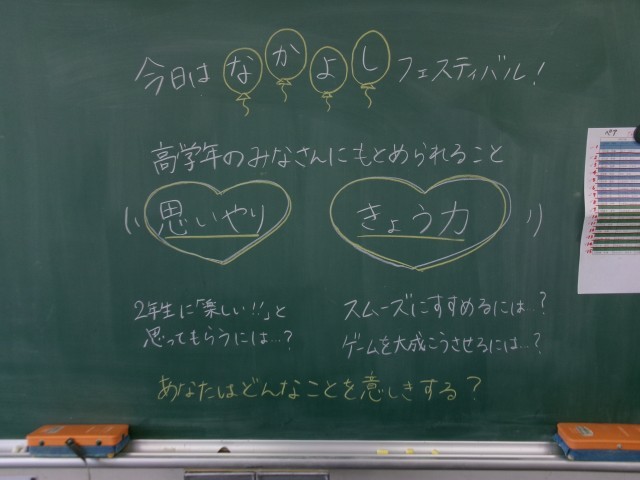 今日は なかよし フェスティバル!
高学年のみなさんにもとめられること
思いやり
きょう力
2年生に「楽しい!!」と
思ってもらうには…?
スムーズにすすめるには…?
ゲームを大成こうさせるには…?
あなたはどんなことを意しきする?